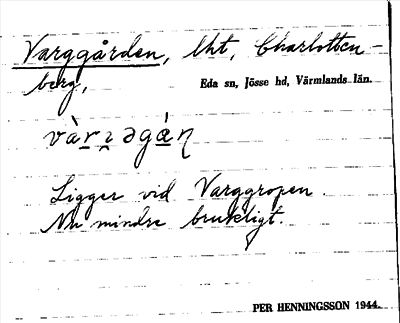 Varggården, lht, Charlotten-
berg, Eda sn, Jösse hd, Värmlands län.
vàr̲ɪ̯əgá̲ɳ
Ligger vid Varggropen.
Nu mindre brukligt.
PER HENNINGSSON 1944.